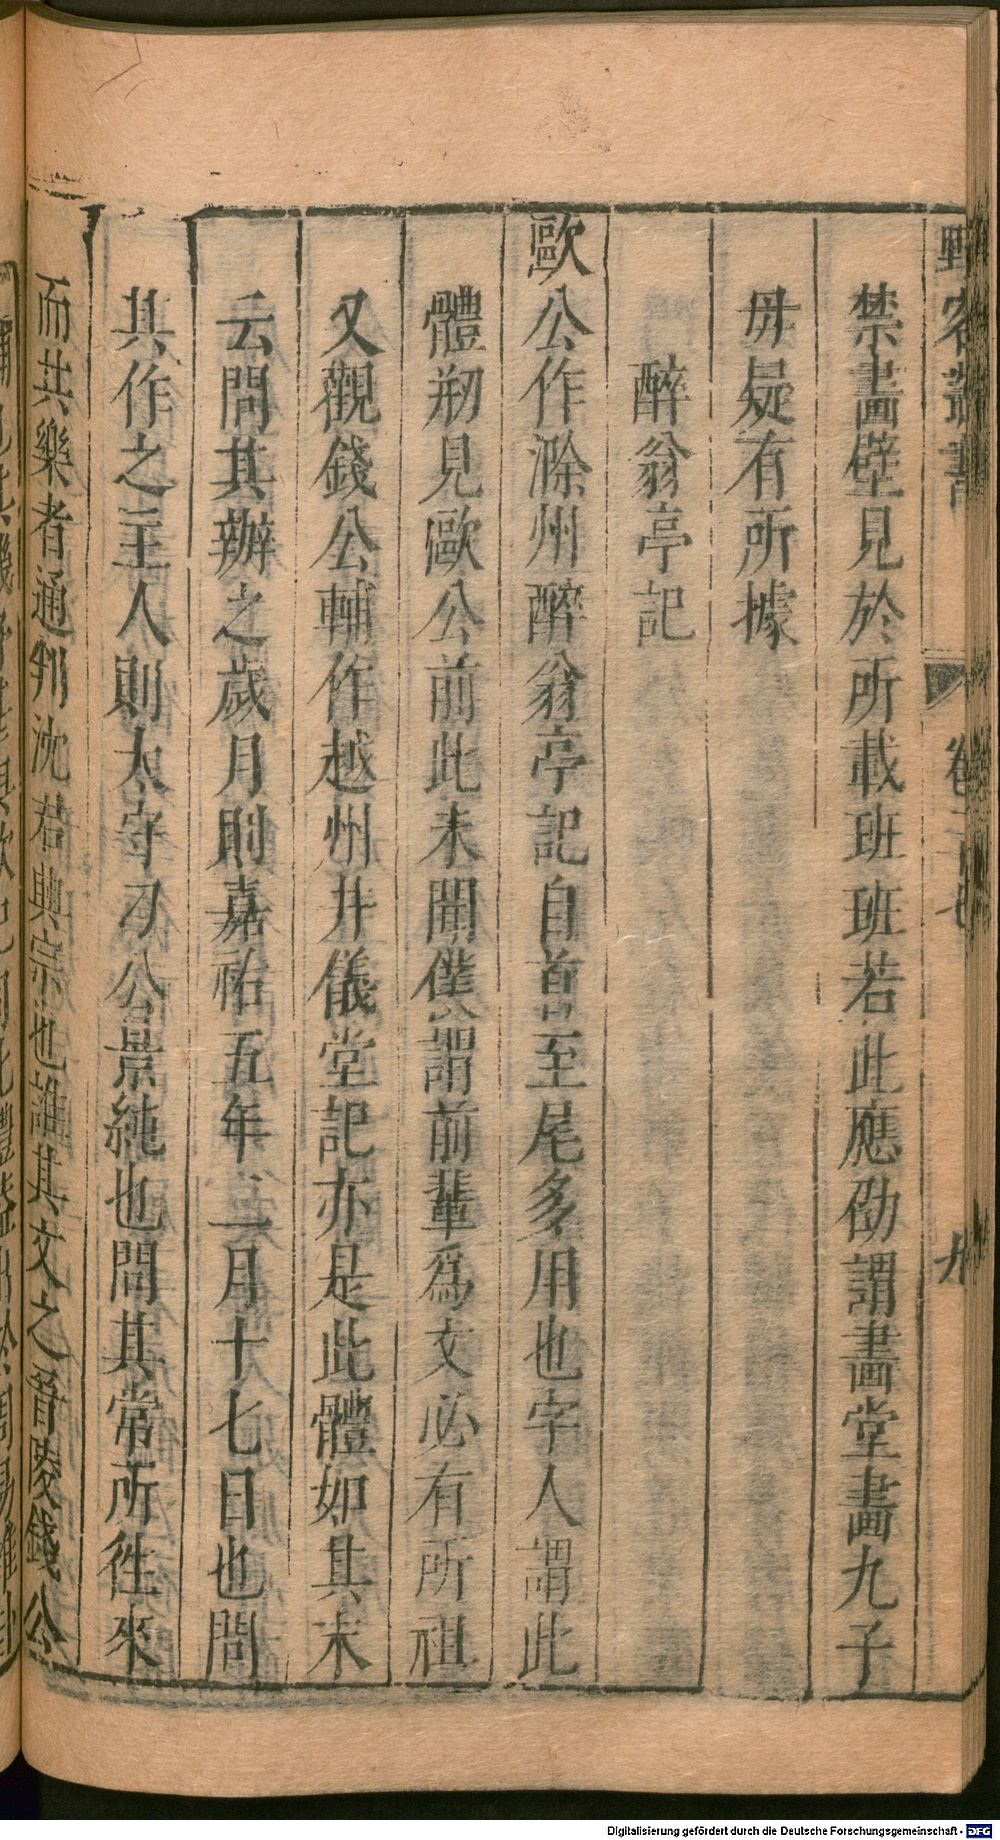 野客叢書 卷二十七 九
禁畫壁見於所載班班若此應劭謂畫堂畫九子
毋疑有所據
醉翁亭記
歐公作滁州醉翁亭記自首至尾多用也字人謂此
體剏見歐公前此未聞僕謂前輩爲文必有所祖
又觀錢公輔作越州井儀堂記亦是此體如其末
云問其辦之歲月則嘉祐五年二月十七日也問
其作之主人則太守刁公景純也問其常所徃來
而共樂者通判沈君興宗也誰其文之晉陵錢公
Digitalisierung gefördert durch die Deutsche Forschungsgemeinschaft - DFG